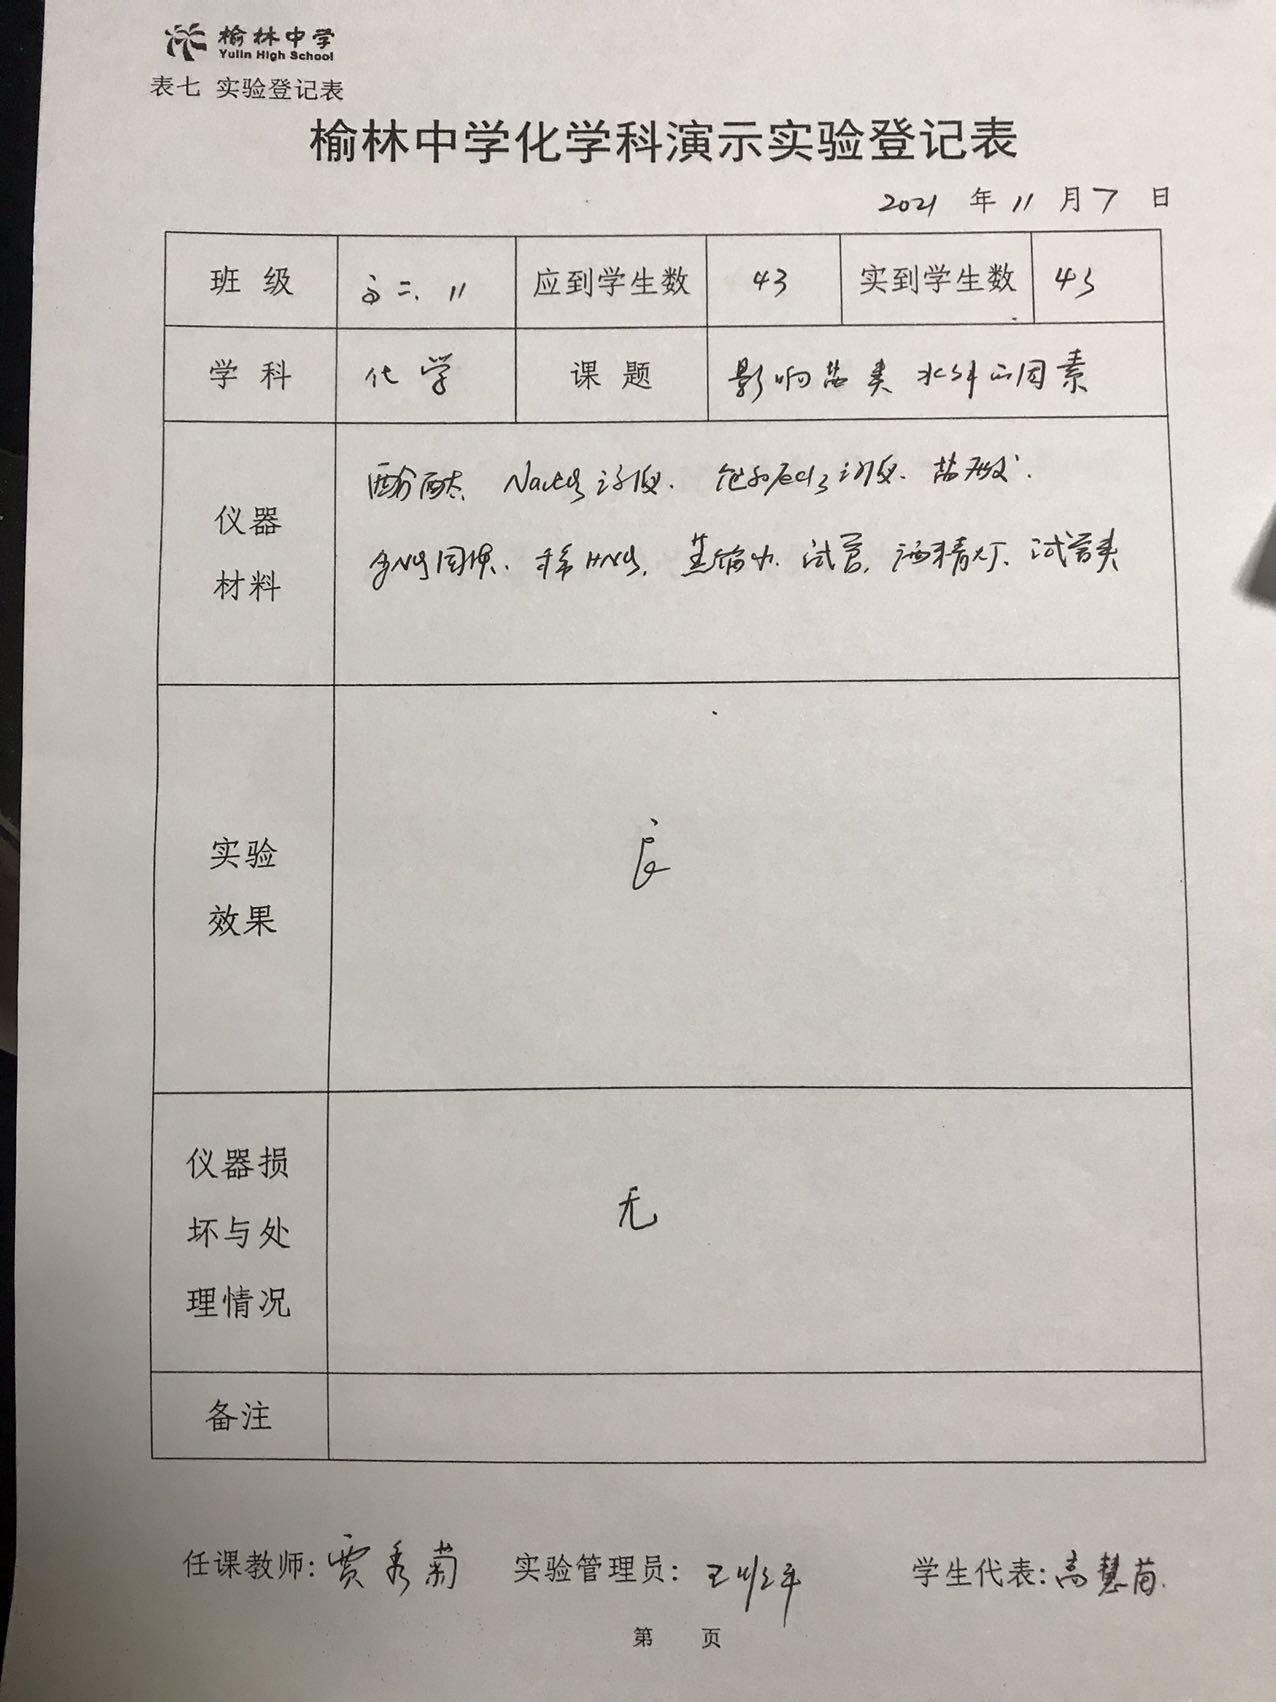 榆林中学
Yulin High School
表七 实验登记表
榆林中学化学科演示实验登记表
2021 年 11 月 7 日
班 级 高二.11 应到学生数 43 实到学生数 43
学 科 化学 课 题 影响盐类水解的因素
仪器材料
酚酞 溶液. 饱和FeCl3溶液. 盐酸.
固体. 稀HNO3. 蒸馏水. 试管. 酒精灯. 试管夹
实验效果
良
仪器损坏与处理情况
无
备注
任课教师: 贾秀菊 实验管理员: 王 学生代表: 高慧苗.
第 页